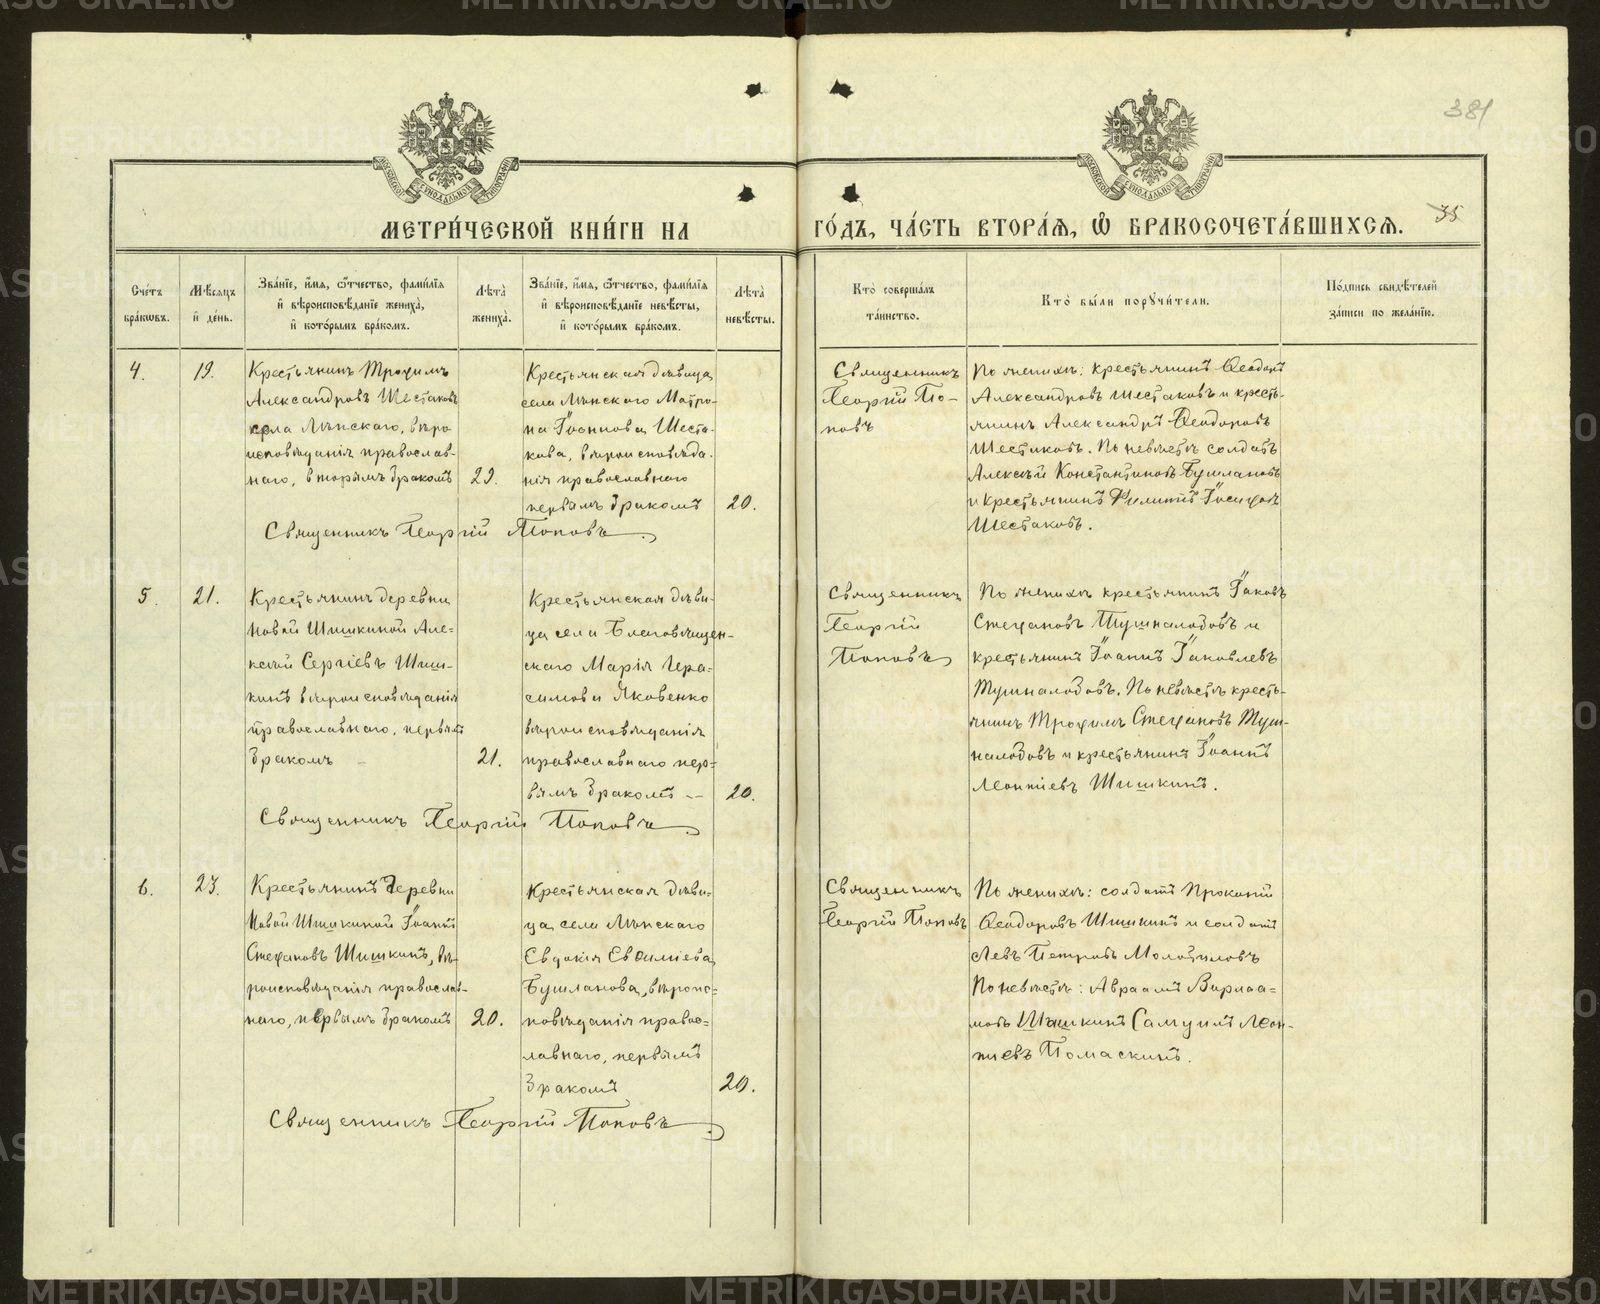 381
МЕТРИ́ЧЕСКОЙ КНИ́ГИ НА ГО́ДЪ, ЧА́СТЬ ВТОРА́Я, Ѽ БРАКОСОЧЕТА́ВШИХСЯ.
35
Сче́тъ бра́кѡвъ.
Мѣ́сяцъ и҆ де́нь.
Зва́нїе, и҆́мя, ѻ҆́тчество, фами́лїя и҆ вѣроисповѣ́данїе жениха̀, и҆ кото́рымъ бра́комъ.
Лѣ́та жениха̀.
Зва́нїе, и҆́мя, ѻ҆́тчество, фами́лїя и҆ вѣроисповѣ́данїе невѣ́сты, и҆ кото́рымъ бра́комъ.
Лѣ́та невѣ́сты.
Кто̀ соверша́лъ та́инство.
Кто̀ бы́ли порꙋчи́тели.
По́дпись свидѣ́телей за́писи по жела́нїю.
4.
19.
Крестьянинъ Трофимъ
Александровъ Шестаковъ
села Мѣнскаго, вѣро
исповѣданія православ-
наго, вторымъ бракомъ
29.
Крестьянская дѣвица
села Мѣнскаго Матро-
на Іоаннова Шеста-
кова, вѣроисповѣда-
нія православнаго
первымъ бракомъ
20.
Священникъ
Георгій По-
повъ
По женихѣ: крестьянинъ Ѳеодотъ
Александровъ Шестаковъ и кресть-
янинъ Александръ Ѳеодоровъ
Шестаковъ. По невѣстѣ солдатъ
Алексѣй Константиновъ Бушлановъ
и крестьянинъ Филиппъ Іосифовъ
Шестаковъ.
Священникъ Георгій Поповъ.
5.
21.
Крестьянинъ деревни
Новой Шишкиной Але-
ксѣй Сергіевъ Шиш-
кинъ вѣроисповѣданія
православнаго, первымъ
бракомъ
21.
Крестьянская дѣви-
ца села Благовѣщен-
скаго Марія Гера-
симова Яковенко
вѣроисповѣданія
православнаго пер-
вымъ бракомъ --
20.
Священникъ
Георгій
Поповъ
По женихѣ крестьянинъ Іаковъ
Стефановъ Тушналобовъ и
крестьянинъ Іоаннъ Іаковлевъ
Тушналобовъ. По невѣстѣ кресть-
янинъ Трофимъ Стефановъ Туш-
налобовъ и крестьянинъ Іоаннъ
Леонтіевъ Шишкинъ.
Священникъ Георгій Поповъ.
6.
23.
Крестьянинъ деревни
Новой Шишкиной Іоаннъ
Стефановъ Шишкинъ, вѣ-
роисповѣданія православ-
наго, первымъ бракомъ
20.
Крестьянская дѣви-
ца села Мѣнскаго
Евдокія Евѳиміева
Бушланова, вѣроис-
повѣданія правос-
лавнаго, первымъ
бракомъ
20.
Священникъ
Георгій Поповъ
По женихѣ: солдатъ Прокопій
Ѳеодоровъ Шишкинъ и солдатъ
Левъ Петровъ Молотиловъ
По невѣстѣ: Авраамъ Варлаа-
мовъ Шишкинъ Самуилъ Леон-
тіевъ Томаскинъ.
Священникъ Георгій Поповъ.
METRIKI.GASO-URAL.RU